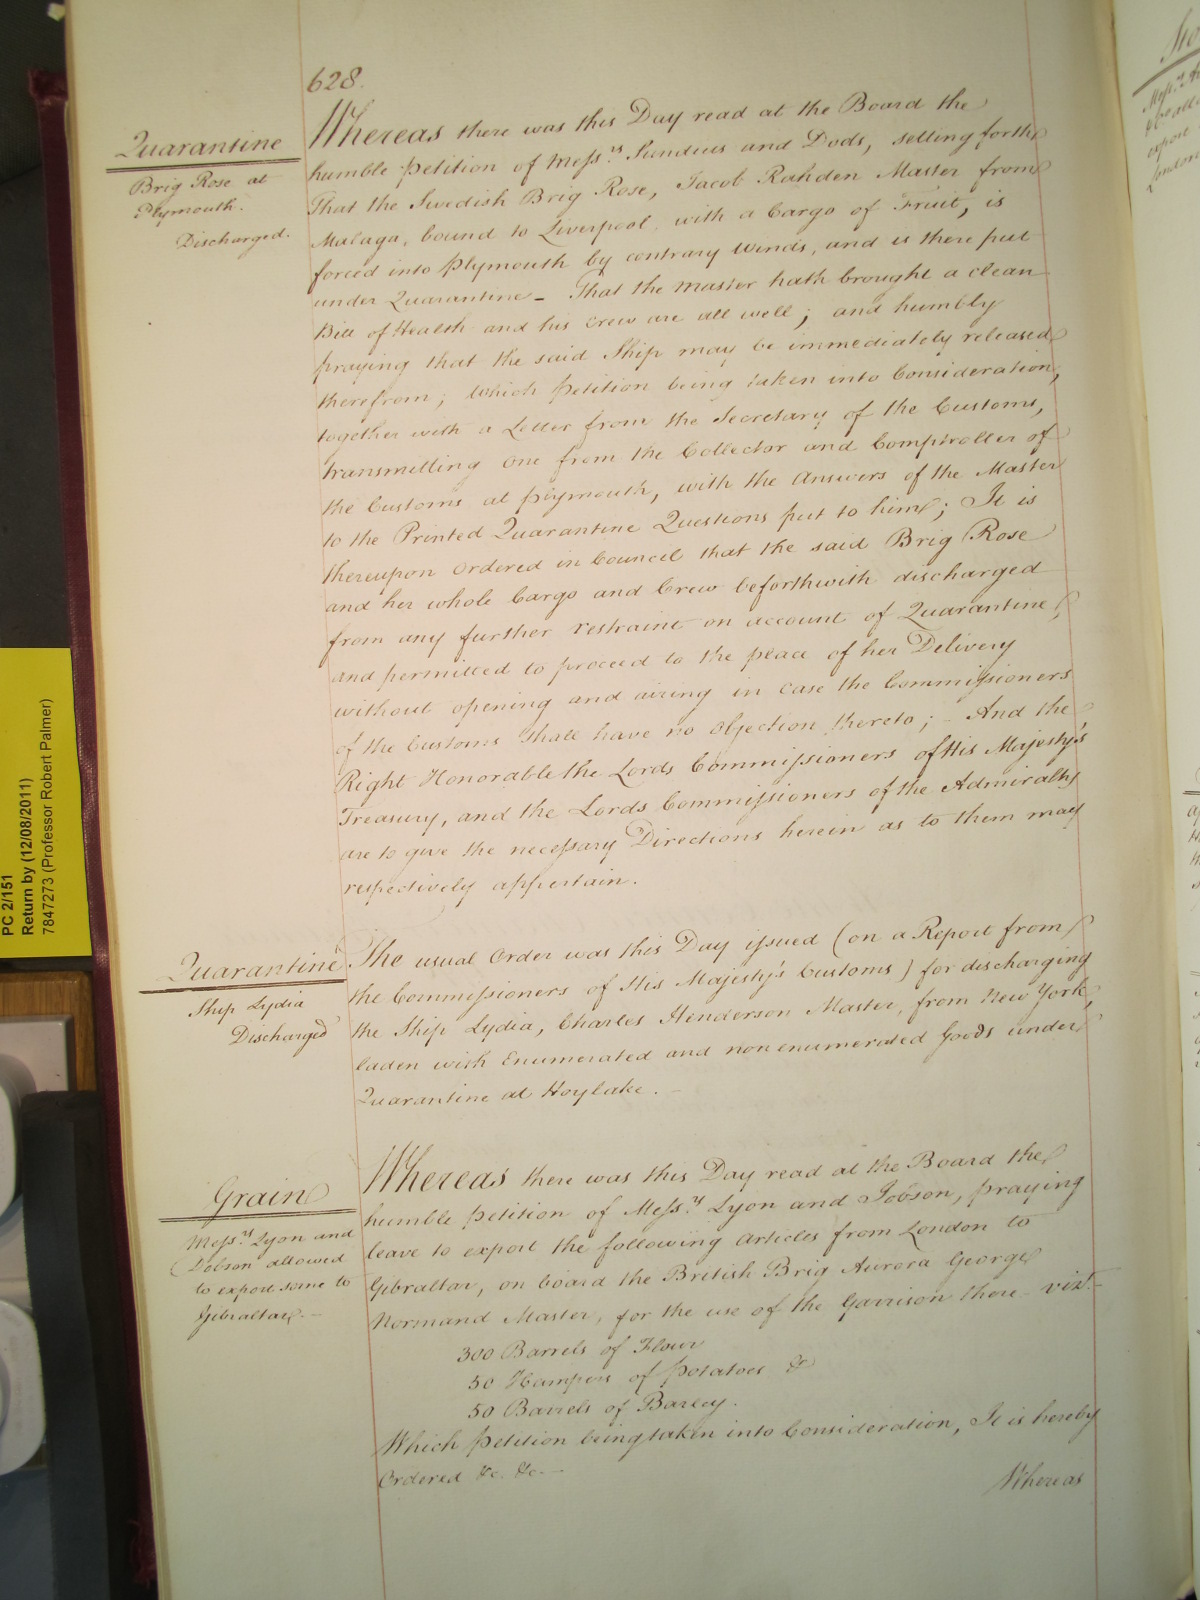 628.
Quarantine
Brig Rose at
Plymouth.
Discharged.
Whereas there was this Day read at the Board the
humble Petition of Mess.rs Sundius and Dods, setting forth
That the Swedish Brig Rose, Jacob Rahden Master from
Malaga, bound to Liverpool, with a Cargo of Fruit, is
forced into Plymouth by contrary Winds, and is there put
under Quarantine – That the Master hath brought a clean
Bill of Health and his Crew are all well; and humbly
praying that the said Ship may be immediately released
therefrom; Which Petition being taken into Consideration,
together with a Letter from the Secretary of the Customs,
transmitting one from the Collector and Comptroller of
the Customs at Plymouth, with the Answers of the Master
to the Printed Quarantine Questions put to him; It is
thereupon Ordered in Council that the said Brig Rose
and her whole Cargo and Crew beforthwith discharged
from any further restraint on account of Quarantine,
and permitted to proceed to the place of her Delivery
without opening and airing in case the Commissioners
of the Customs shall have no Objection thereto; – And the
Right Honorable the Lords Commissioners of His Majesty's
Treasury, and the Lords Commissioners of the Admiralty
are to give the necessary Directions herein as to them may
respectively appertain.
Quarantine
Ship Lydia
Discharged
The usual Order was this Day issued (on a Report from
the Commissioners of His Majesty's Customs) for discharging
the Ship Lydia, Charles Henderson Master, from New York,
laden with Enumerated and non enumerated Goods under
Quarantine at Hoylake. –
Grain
Mess.rs Lyon and
Jobson allowed
to export some to
Gibraltar. –
Whereas there was this Day read at the Board the
humble Petition of Mess.rs Lyon and Jobson, praying
leave to export the following Articles from London to
Gibraltar, on board the British Brig Aurora George
Normand Master, for the use of the Garrison there – viz.t –
300 Barrels of Flour
50 Hampers of Potatoes &
50 Barrels of Barley.
Which Petition being taken into Consideration, It is hereby
Ordered &c. &c. –
Whereas
PC 2/151
Return by (12/08/2011)
7847273 (Professor Robert Palmer)